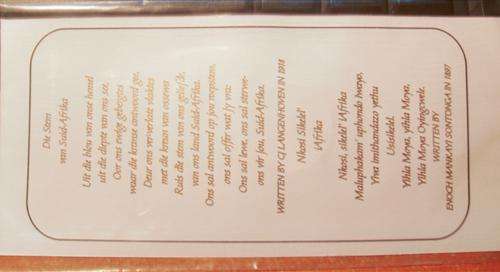 Die Stem
van Suid-Afrika
Uit die blou van onse hemel
uit die diepte van ons see,
Oor ons ewig gebergtes
waar die kranse antwoord gee,
Deur ons ver verlate vlaktes
met die kreun van ossewa
Ruis die stem van ons geliefde,
van ons land Suid-Afrika.
Ons sal antwoord op jou roepstem,
ons sal offer wat jy vra:
Ons sal lewe, ons sal sterwe-
ons vir jou, Suid-Afrika.
WRITTEN BY CJ LANGENHOVEN IN 1918
Nkosi Sikelel'
iAfrika
Nkosi, sikelel' iAfrika
Maluphakam' uphondo lwayo,
Yiva imithandazo yethu
Usisikelel.
Yihla Moya, yihla Moya,
Yihla Moya Oyingcwele.
WRITTEN BY
ENOCH MANKAYI SONTONGA IN 1897